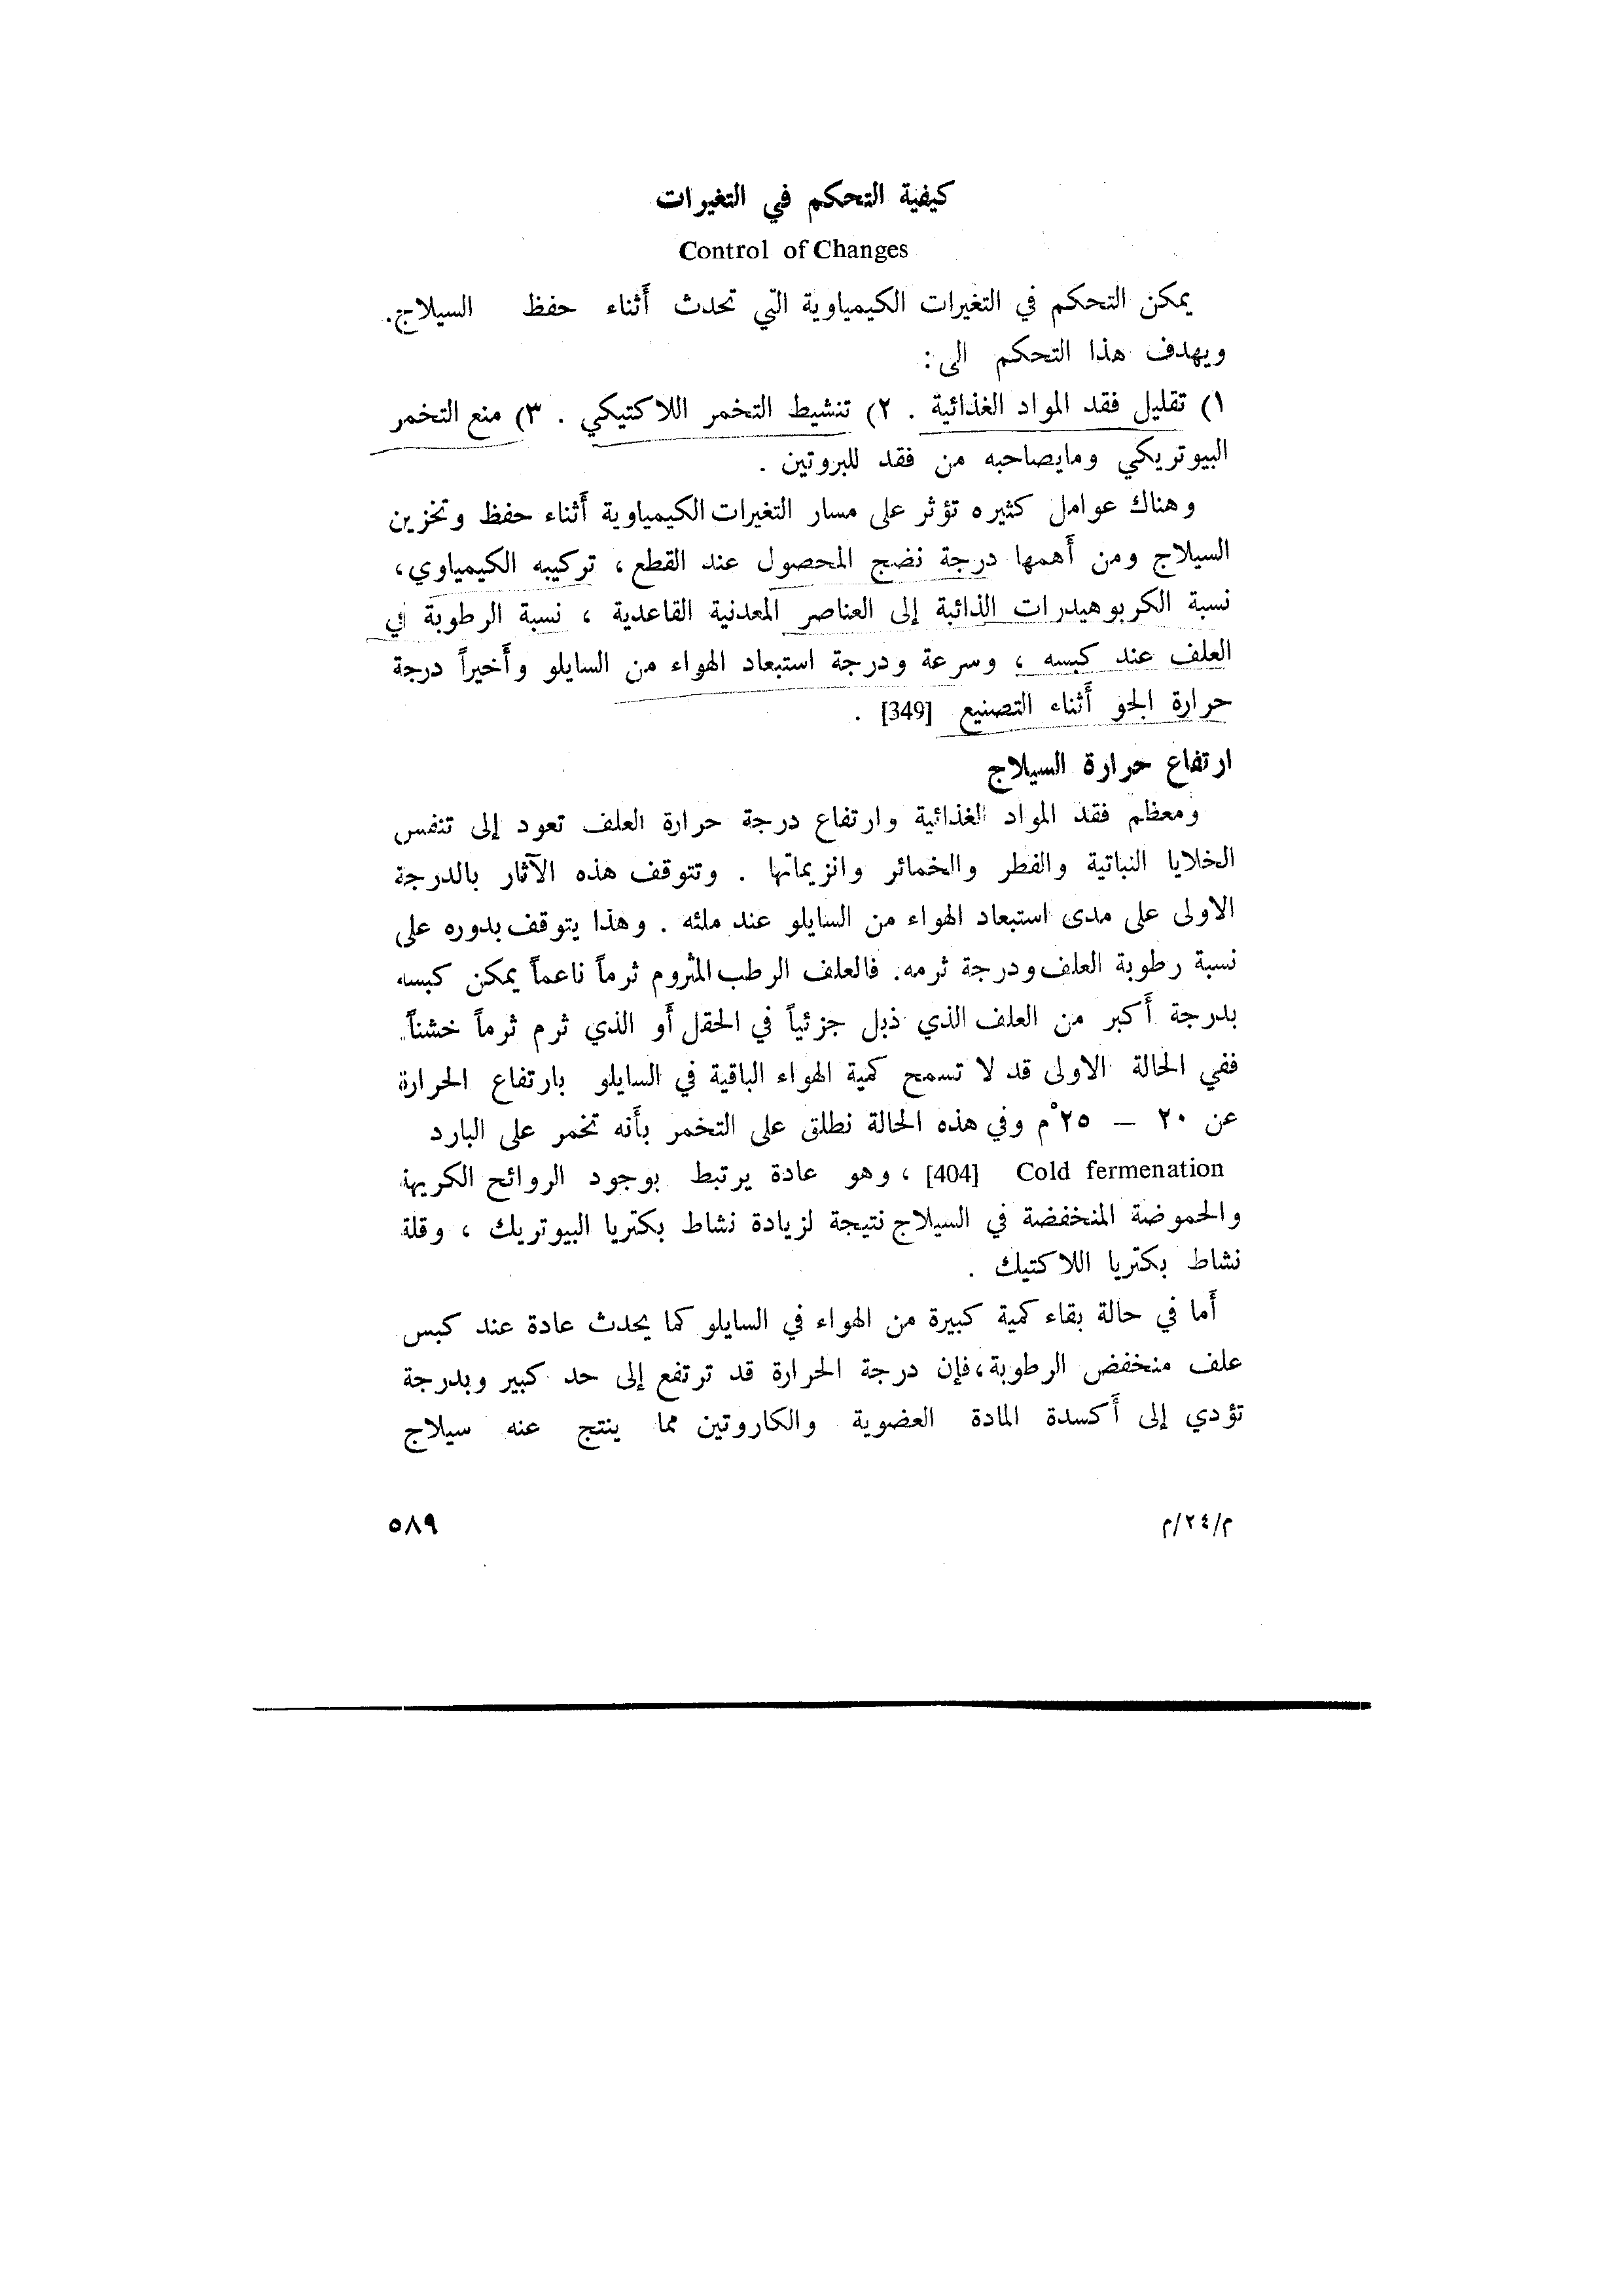 كيفية التحكم في التغيرات
Control of Changes
يمكن التحكم في التغيرات الكيمياوية التي تحدث أثناء حفظ السيلاج.
ويهدف هذا التحكم الى:
١) تقليل فقد المواد الغذائية . ٢) تنشيط التخمر اللاكتيكي . ٣) منع التخمر
البيوتريكي ومايصاحبه من فقد للبروتين .
وهناك عوامل كثيره تؤثر على مسار التغيرات الكيمياوية أثناء حفظ وتخزين
السيلاج ومن أهمها درجة نضج المحصول عند القطع، تركيبه الكيمياوي،
نسبة الكربوهيدرات الذائبة إلى العناصر المعدنية القاعدية ، نسبة الرطوبة في
العلف عند كبسه ، وسرعة ودرجة استبعاد الهواء من السايلو وأخيراً درجة
حرارة الجو أثناء التصنيع [349] .
ارتفاع حرارة السيلاج
ومعظم فقد المواد الغذائية وارتفاع درجة حرارة العلف تعود إلى تنفس
الخلايا النباتية والفطر والخمائر وانزيماتها . وتتوقف هذه الآثار بالدرجة
الاولى على مدى استبعاد الهواء من السايلو عند ملئه . وهذا يتوقف بدوره على
نسبة رطوبة العلف ودرجة ثرمه. فالعلف الرطب المثروم ثرماً ناعماً يمكن كبسه
بدرجة أكبر من العلف الذي ذبل جزئياً في الحقل أو الذي ثرم ثرماً خشناً.
ففي الحالة الاولى قد لا تسمح كمية الهواء الباقية في السايلو بارتفاع الحرارة
عن ٢٠ – ٢٥°م وفي هذه الحالة نطلق على التخمر بأنه تخمر على البارد
Cold fermenation [404] ، وهو عادة يرتبط بوجود الروائح الكريهة
والحموضة المنخفضة في السيلاج نتيجة لزيادة نشاط بكتريا البيوتريك ، وقلة
نشاط بكتريا اللاكتيك .
أما في حالة بقاء كمية كبيرة من الهواء في السايلو كما يحدث عادة عند كبس
علف منخفض الرطوبة، فإن درجة الحرارة قد ترتفع إلى حد كبير وبدرجة
تؤدي إلى أكسدة المادة العضوية والكاروتين مما ينتج عنه سيلاج
م/٢٤/م
٥٨٩